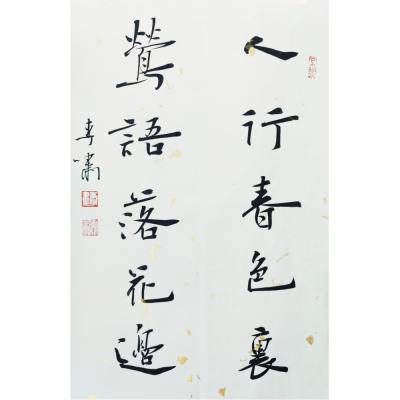 人行春色裏
鶯語落花邊
李嘯